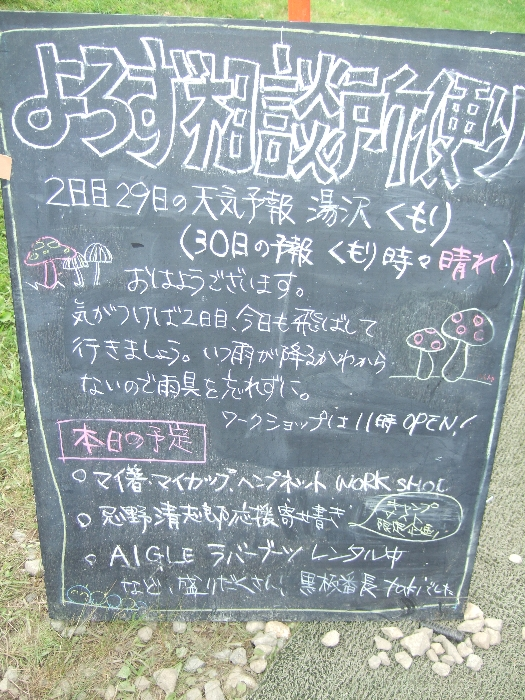 よろず相談所便り
2日目29日の天気予報 湯沢 くもり
(30日の予報 くもり時々晴れ)
おはようございます。
気がつけば2日目、今日も飛ばして
行きましょう。いつ雨が降るかわから
ないので雨具を忘れずに。
ワークショップは11時OPEN!
本日の予定
○マイ箸・マイカップ、ヘンプネット WORK SHOP
○忌野清志郎応援寄せ書き
キャンプサイト
限定企画!
○AIGLE ラバーブーツ レンタル中
などなど、盛りだくさん、黒板番長 yukiでした